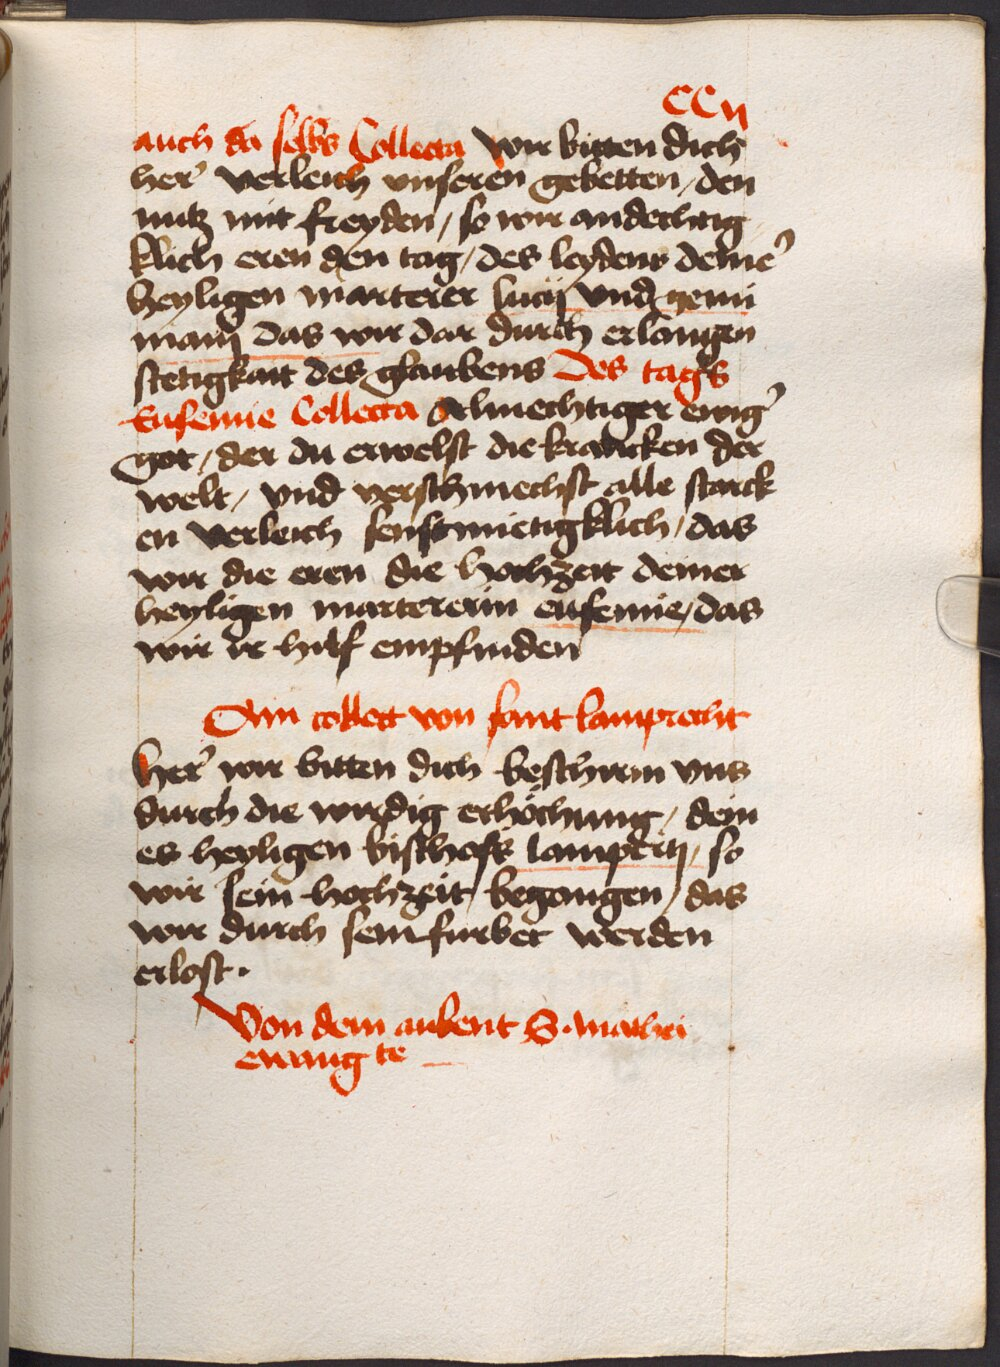 CCij
auch da selbs Collecta Wir bitten dich
her' verleich unseren gebetten / den
nutz mit freyden / so wir andechtig
klich eren den tag / des leydens deine'
heyligen marterer lucij und gemi
miani das wir dar durch erlangen
stetigkait des glaubens Des tags
Eufemie Collecta Almechtiger ewig'
got / der du erwelst die krancken der
welt / und verschmechst alle starck
en verleich senftmietigklich / das
wir die eren die hochzeit deiner
heyligen martererin eufemie / das
wir ir hilf empfinden
Ain collect von sant lamprecht
her' wir bitten dich beschirm uns
durch die wirdig erhöchung / dein
es heyligen bischofs lamperti / so
wir sein hochzeit begangen / das
wir durch sein furbet werden
erlost .
Von dem aubent S . mathei
ewang te